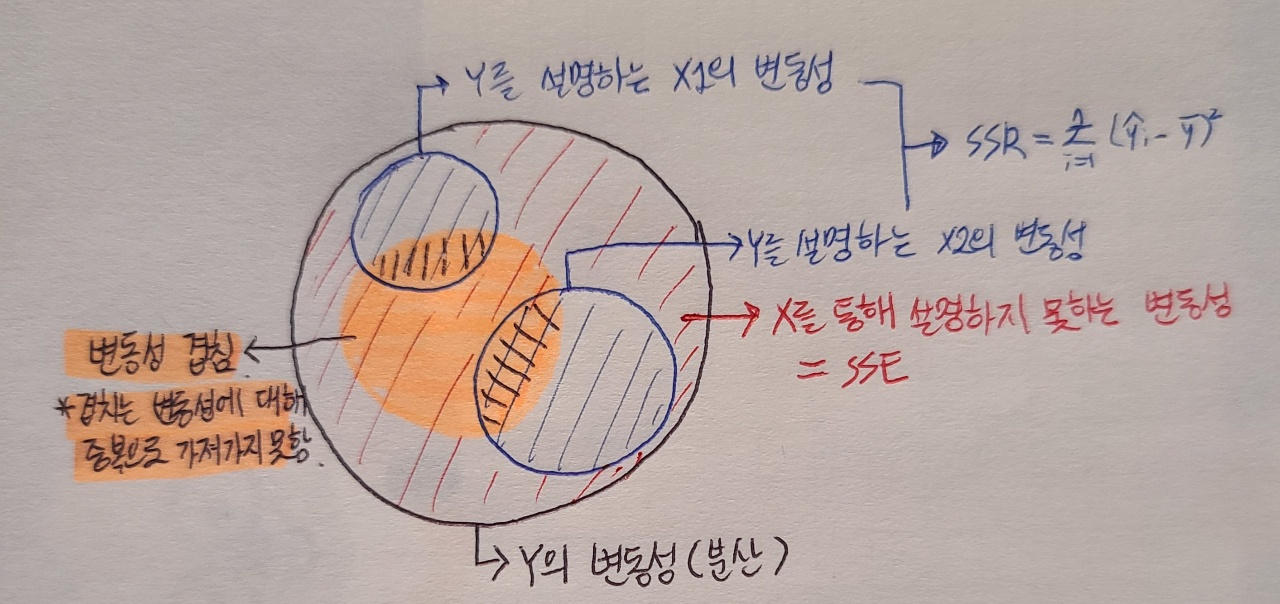 Y를 설명하는 X1의 변동성
SSR = Σ i=1 (ŷi - ȳ)²
Y를 설명하는 X2의 변동성
X를 통해 설명하지 못하는 변동성
= SSE
변동성 겹침
*겹치는 변동성에 대해
중복으로 가져가지 못함.
Y의 변동성(분산)